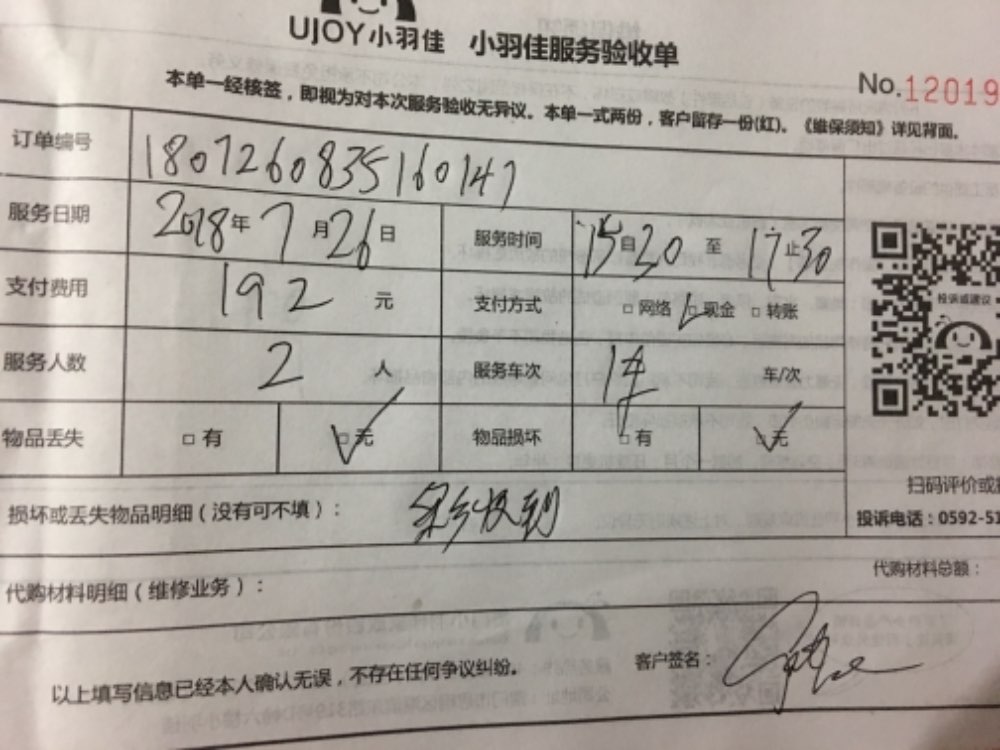 UJOY小羽佳 小羽佳服务验收单
No.12019
本单一经核签，即视为对本次服务验收无异议。本单一式两份，客户留存一份(红)。《维保须知》详见背面。
订单编号 1807260835160147
服务日期 2018年7月26日 服务时间 15自30至17止30
支付费用 192元 支付方式 □网络 □现金 □转账
投诉或建议
服务人数 2人 服务车次 1车 车/次
物品丢失 □有 □无 物品损坏 □有 □无
扫码评价或
损坏或丢失物品明细（没有可不填）：
投诉电话：0592-51
代购材料明细（维修业务）：
代购材料总额：
以上填写信息已经本人确认无误，不存在任何争议纠纷。
客户签名：